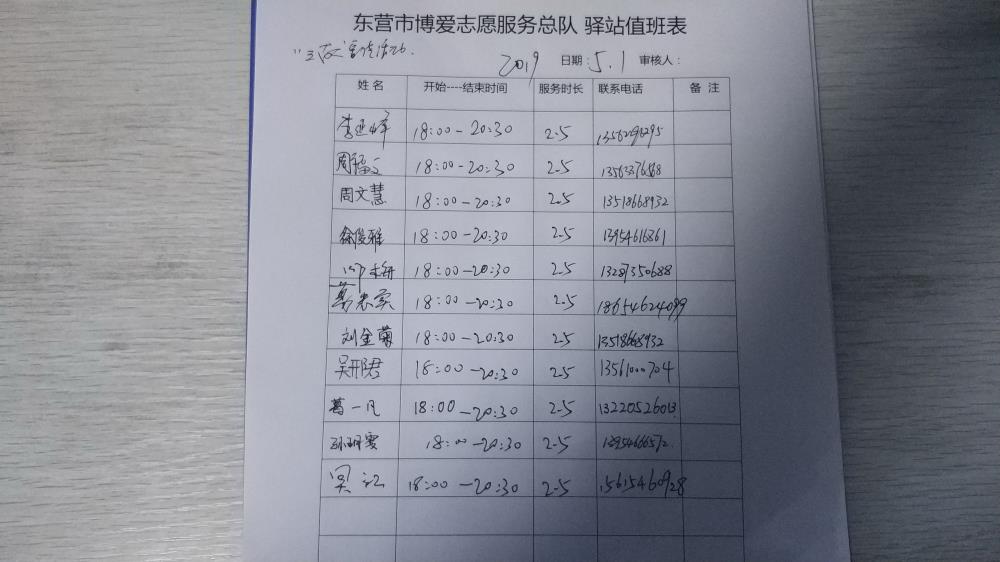 东营市博爱志愿服务总队 驿站值班表
2019 日期：5.1 审核人：
姓名 开始----结束时间 服务时长 联系电话 备 注
李延峰 18:00-20:30 2.5
周福文 18:00-20:30 2.5
周文慧 18:00-20:30 2.5 13518668932
徐俊雅 18:00-20:30 2.5 13954616861
18:00-20:30 2.5 13287350688
18:00-20:30 2.5 18654624099
刘金菊 18:00-20:30 2.5
吴邢君 18:00-20:30 2.5 13561000704
葛一凡 18:00-20:30 2.5 13220526013
孙明雯 18:00-20:30 2.5
18:00-20:30 2.5 15615460928